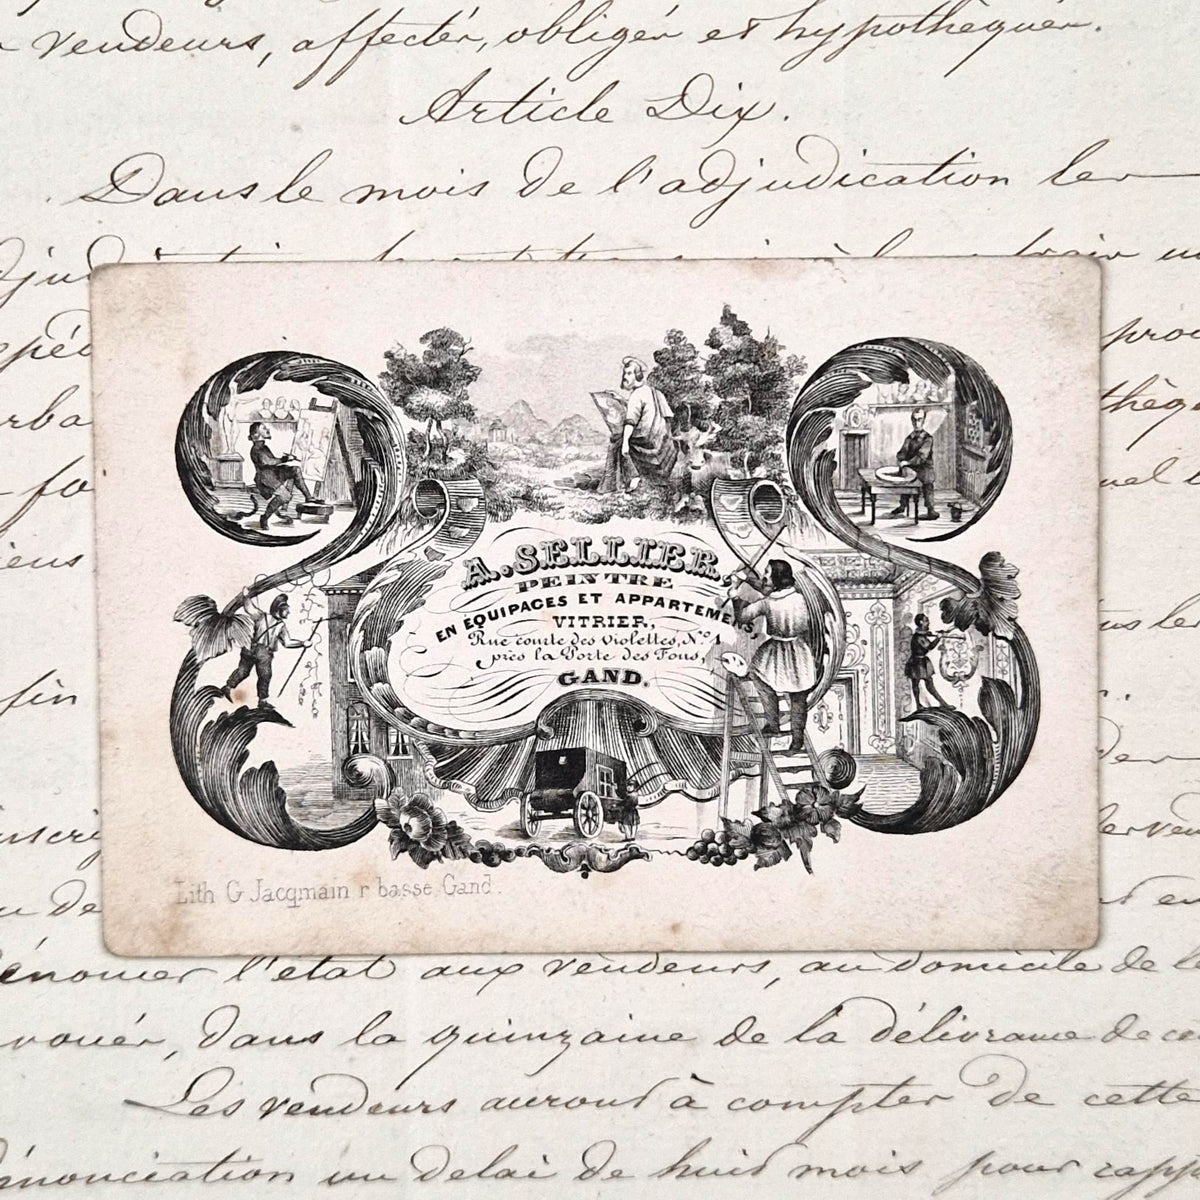 vendeurs, affecter, obliger et hypothéquer.
Article Dix.
Dans le mois de l'adjudication les
A. SELLIER,
PEINTRE
EN ÉQUIPAGES ET APPARTEMENS,
VITRIER,
Rue courte des Violettes, N.º 1
près la Porte des Fous,
GAND.
Lith G Jacqmain r basse Gand.
l'état aux vendeurs, au domicile de
dans la quinzaine de la délivrance de
Les vendeurs auront à compter de cette
un délai de huit mois pour